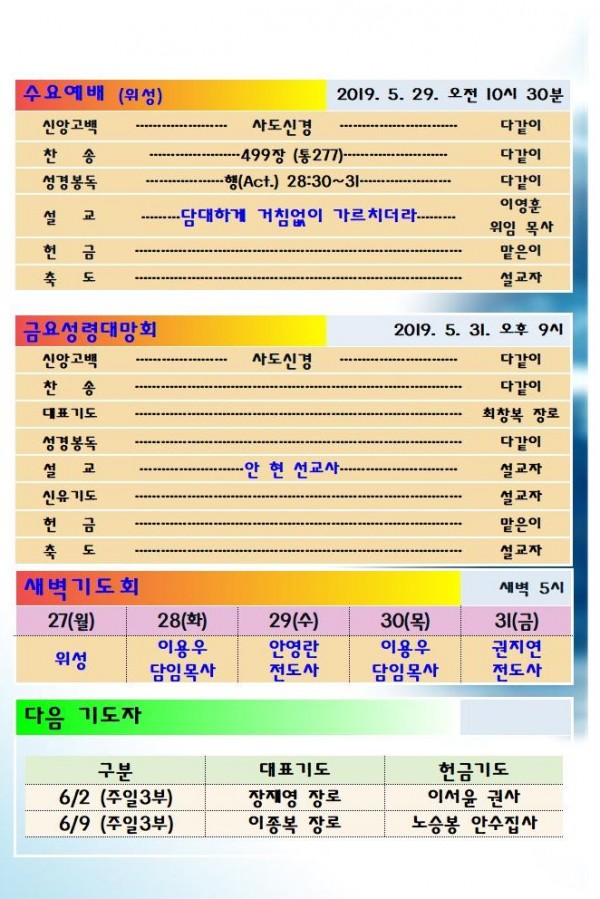 수요예배 (위성) 2019. 5. 29. 오전 10시 30분
신앙고백 -------------------- 사도신경 -------------------------- 다같이
찬 송 --------------------499장 (통277)----------------------- 다같이
성경봉독 -----------------행(Act.) 28:30~31-------------------- 다같이
설 교 ---------담대하게 거침없이 가르치더라--------- 이영훈 위임 목사
헌 금 ------------------------------------------------------------------------ 맡은이
축 도 ------------------------------------------------------------------------ 설교자
금요성령대망회 2019. 5. 31. 오후 9시
신앙고백 -------------------- 사도신경 -------------------------- 다같이
찬 송 ------------------------------------------------------------------------ 다같이
대표기도 ------------------------------------------------------------------------ 최창복 장로
성경봉독 ------------------------------------------------------------------------ 다같이
설 교 -----------------------안 현 선교사--------------------------- 설교자
신유기도 ------------------------------------------------------------------------ 설교자
헌 금 ------------------------------------------------------------------------ 맡은이
축 도 ------------------------------------------------------------------------ 설교자
새벽기도회 새벽 5시
27(월) 28(화) 29(수) 30(목) 31(금)
위성 이용우 담임목사 안영란 전도사 이용우 담임목사 권지연 전도사
다음 기도자
구분 대표기도 헌금기도
6/2 (주일3부) 장재영 장로 이서윤 권사
6/9 (주일3부) 이종복 장로 노승봉 안수집사